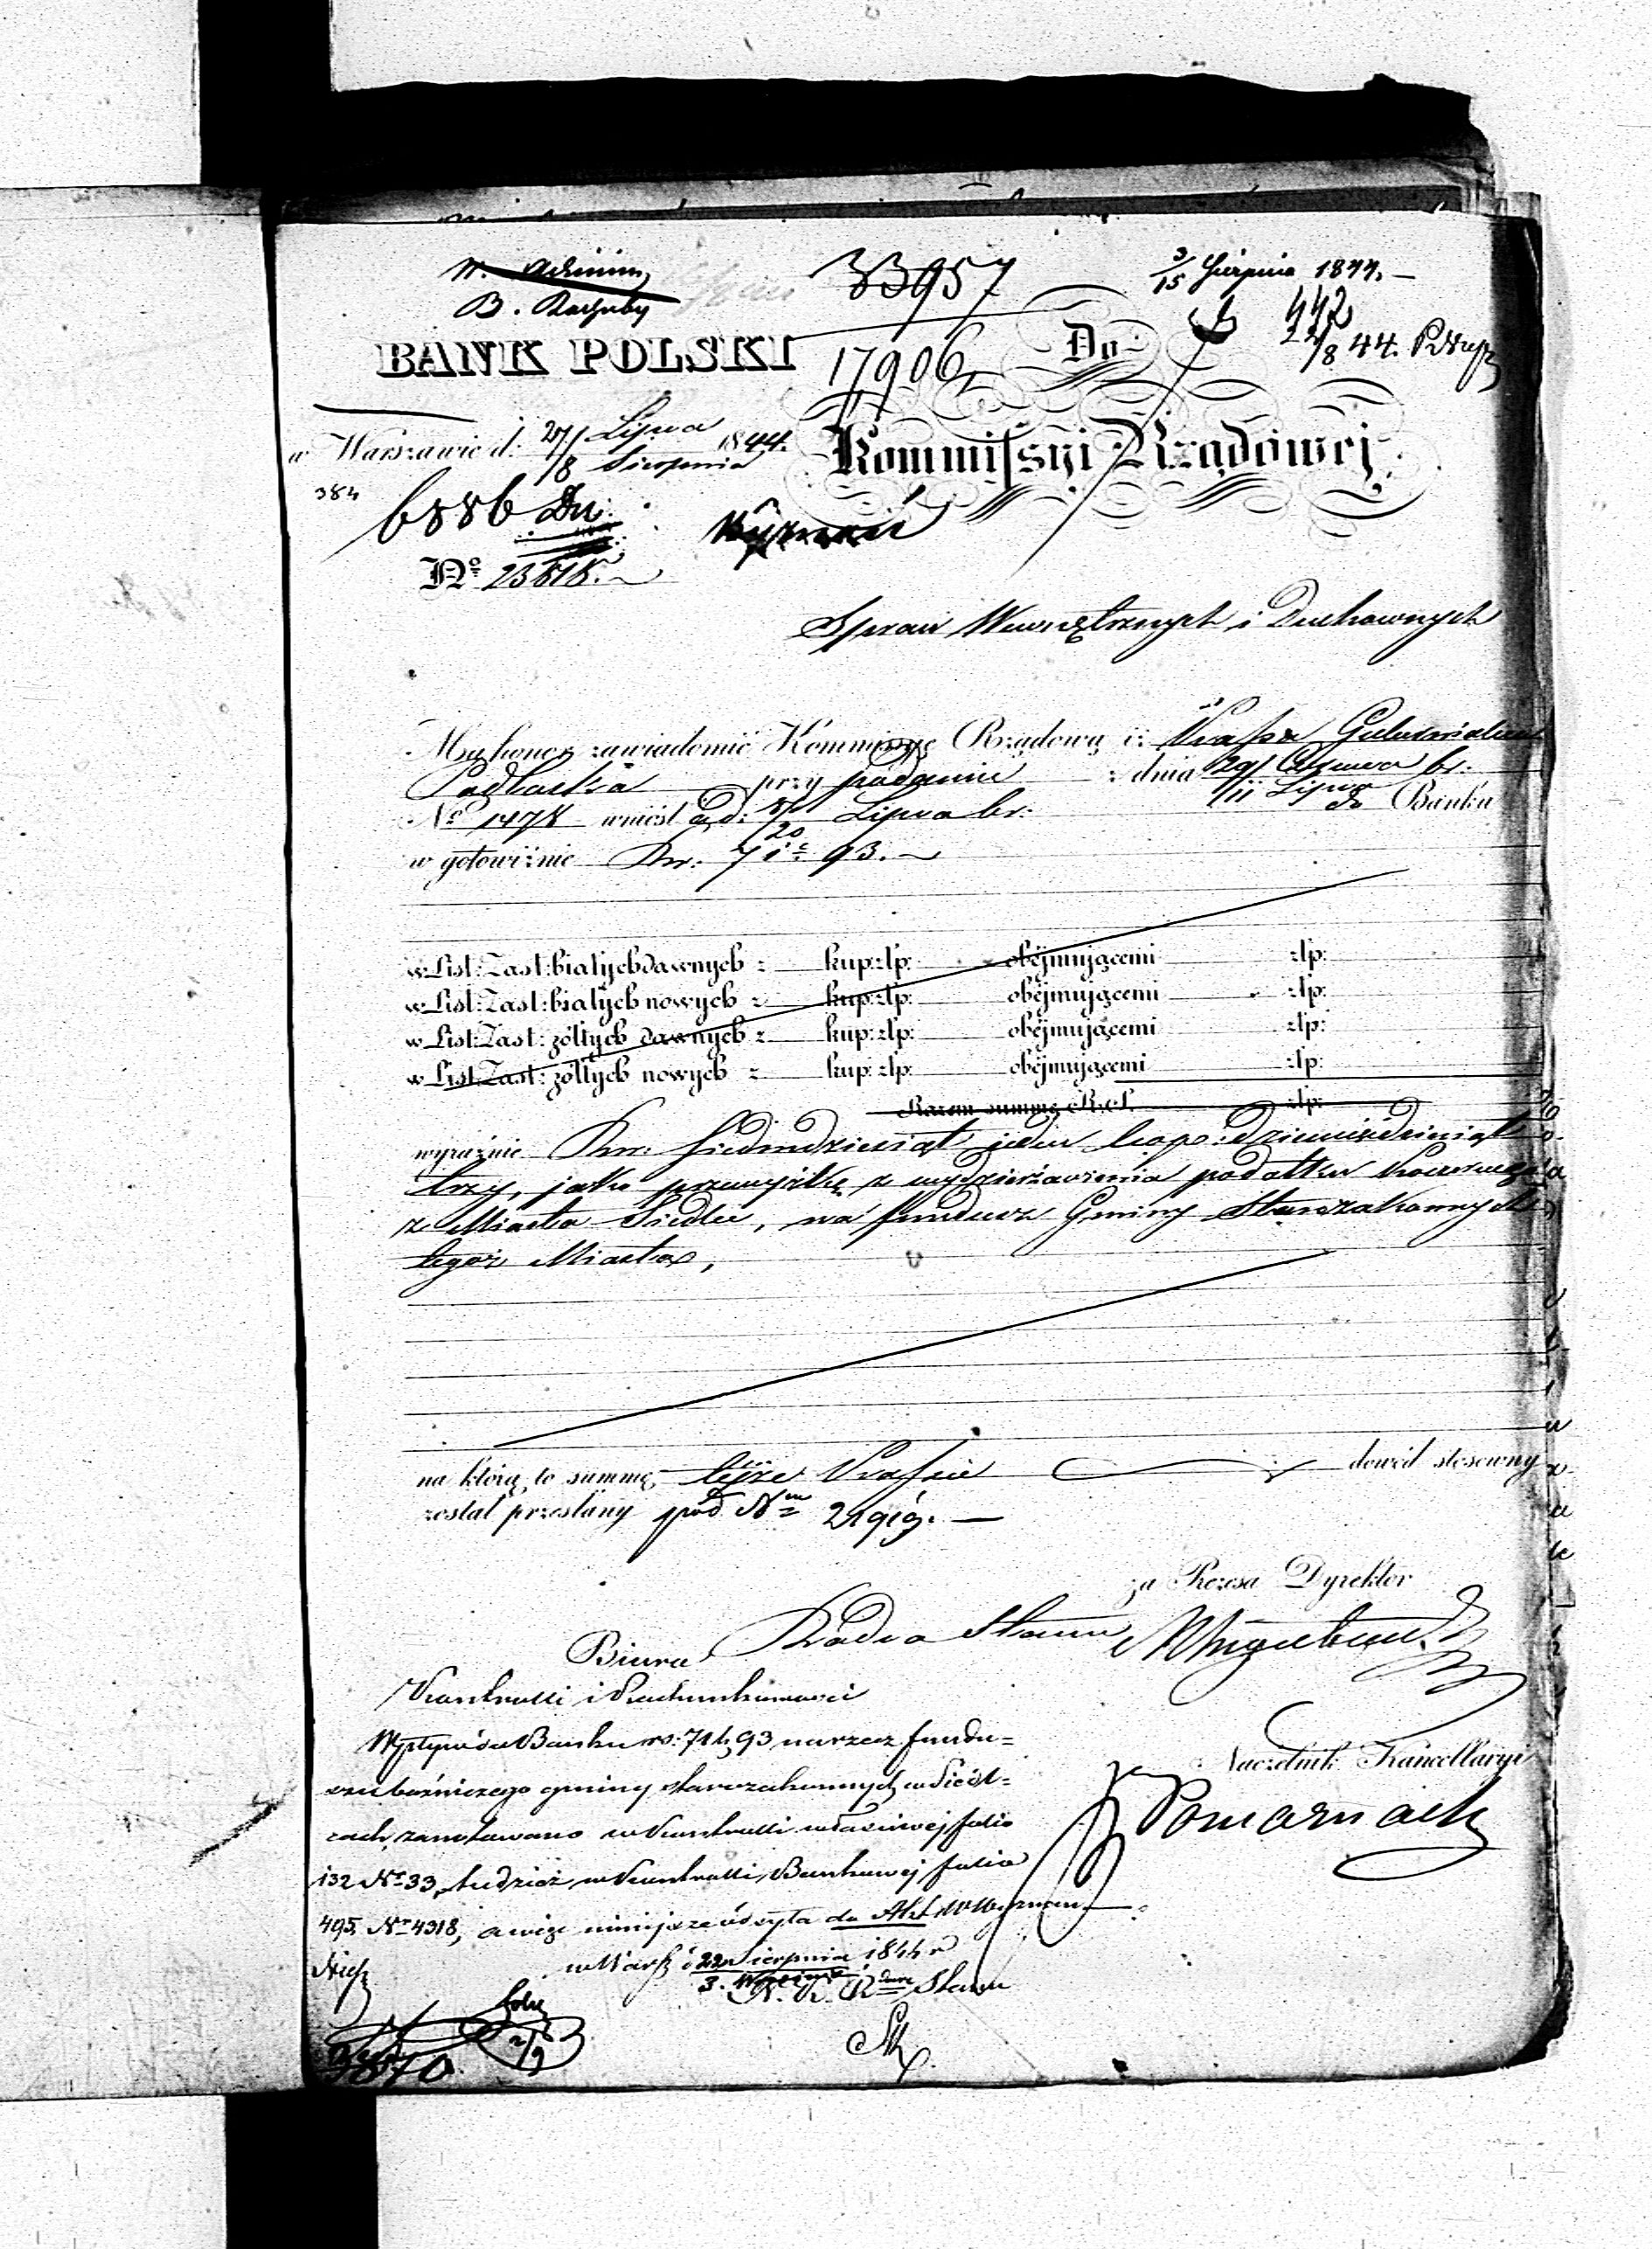 W. Admin
B. Rachuby
33957
3/15 Sierpnia 1844.
442
22/8 44.
BANK POLSKI
17906
Do
w Warszawie d: 27/8 Lipca Sierpnia 1844.
Kommissyi Rządowej
384
6886
Wyznań
No
Spraw Wewnętrznych i Duchownych
Ma honor zawiadomić Kommissyę Rządową iż Kassa Gubernialna
Podlaska przy podaniu z dnia 29/11 Czerwca Lipca br:
No 1478 wniósł a d: 8/20 Lipca br: do Banku
w gotowiźnie Rsr: 71 c 93.
w List: Zast: białych dawnych z kup: złp: obejmującemi złp:
w List: Zast: białych nowych z kup: złp: obejmującemi złp:
w List: Zast: żółtych dawnych z kup: złp: obejmującemi złp:
w List: Zast: żółtych nowych z kup: złp: obejmującemi złp:
Razem summę złp:
wyraźnie Rsr: siedmdziesiąt jeden kop: dziewiędziesiąt
trzy, jako przewyżkę z wydzierżawienia podatku koszernego
z Miasta Siedlec, na fundusz Gminy Starozakonnych
tegoż Miasta,
na którą to summę tejże Kassie dowód stosowny
został przesłany pod Nm 21919.
za Prezesa Dyrektor
Radca Stanu
Biuro
Kontrolli i Rachunkowości
Wpływ do Banku rs: 71 k 93 na rzecz fundu=
szu bóżniczego gminy starozakonnych w Siedl=
cach zanotowano w Kontrolli właściwej folio
132 Nr 33, tudzież w Kontrolli Bankowej folio
495 Nr 4318, a więc niniejsze odsyła do Akt W. Wyznań
Naczelnik Kancellaryi
w Warsz d 22 Sierpnia 3. Września 1844 r
N. K. Radca Stanu